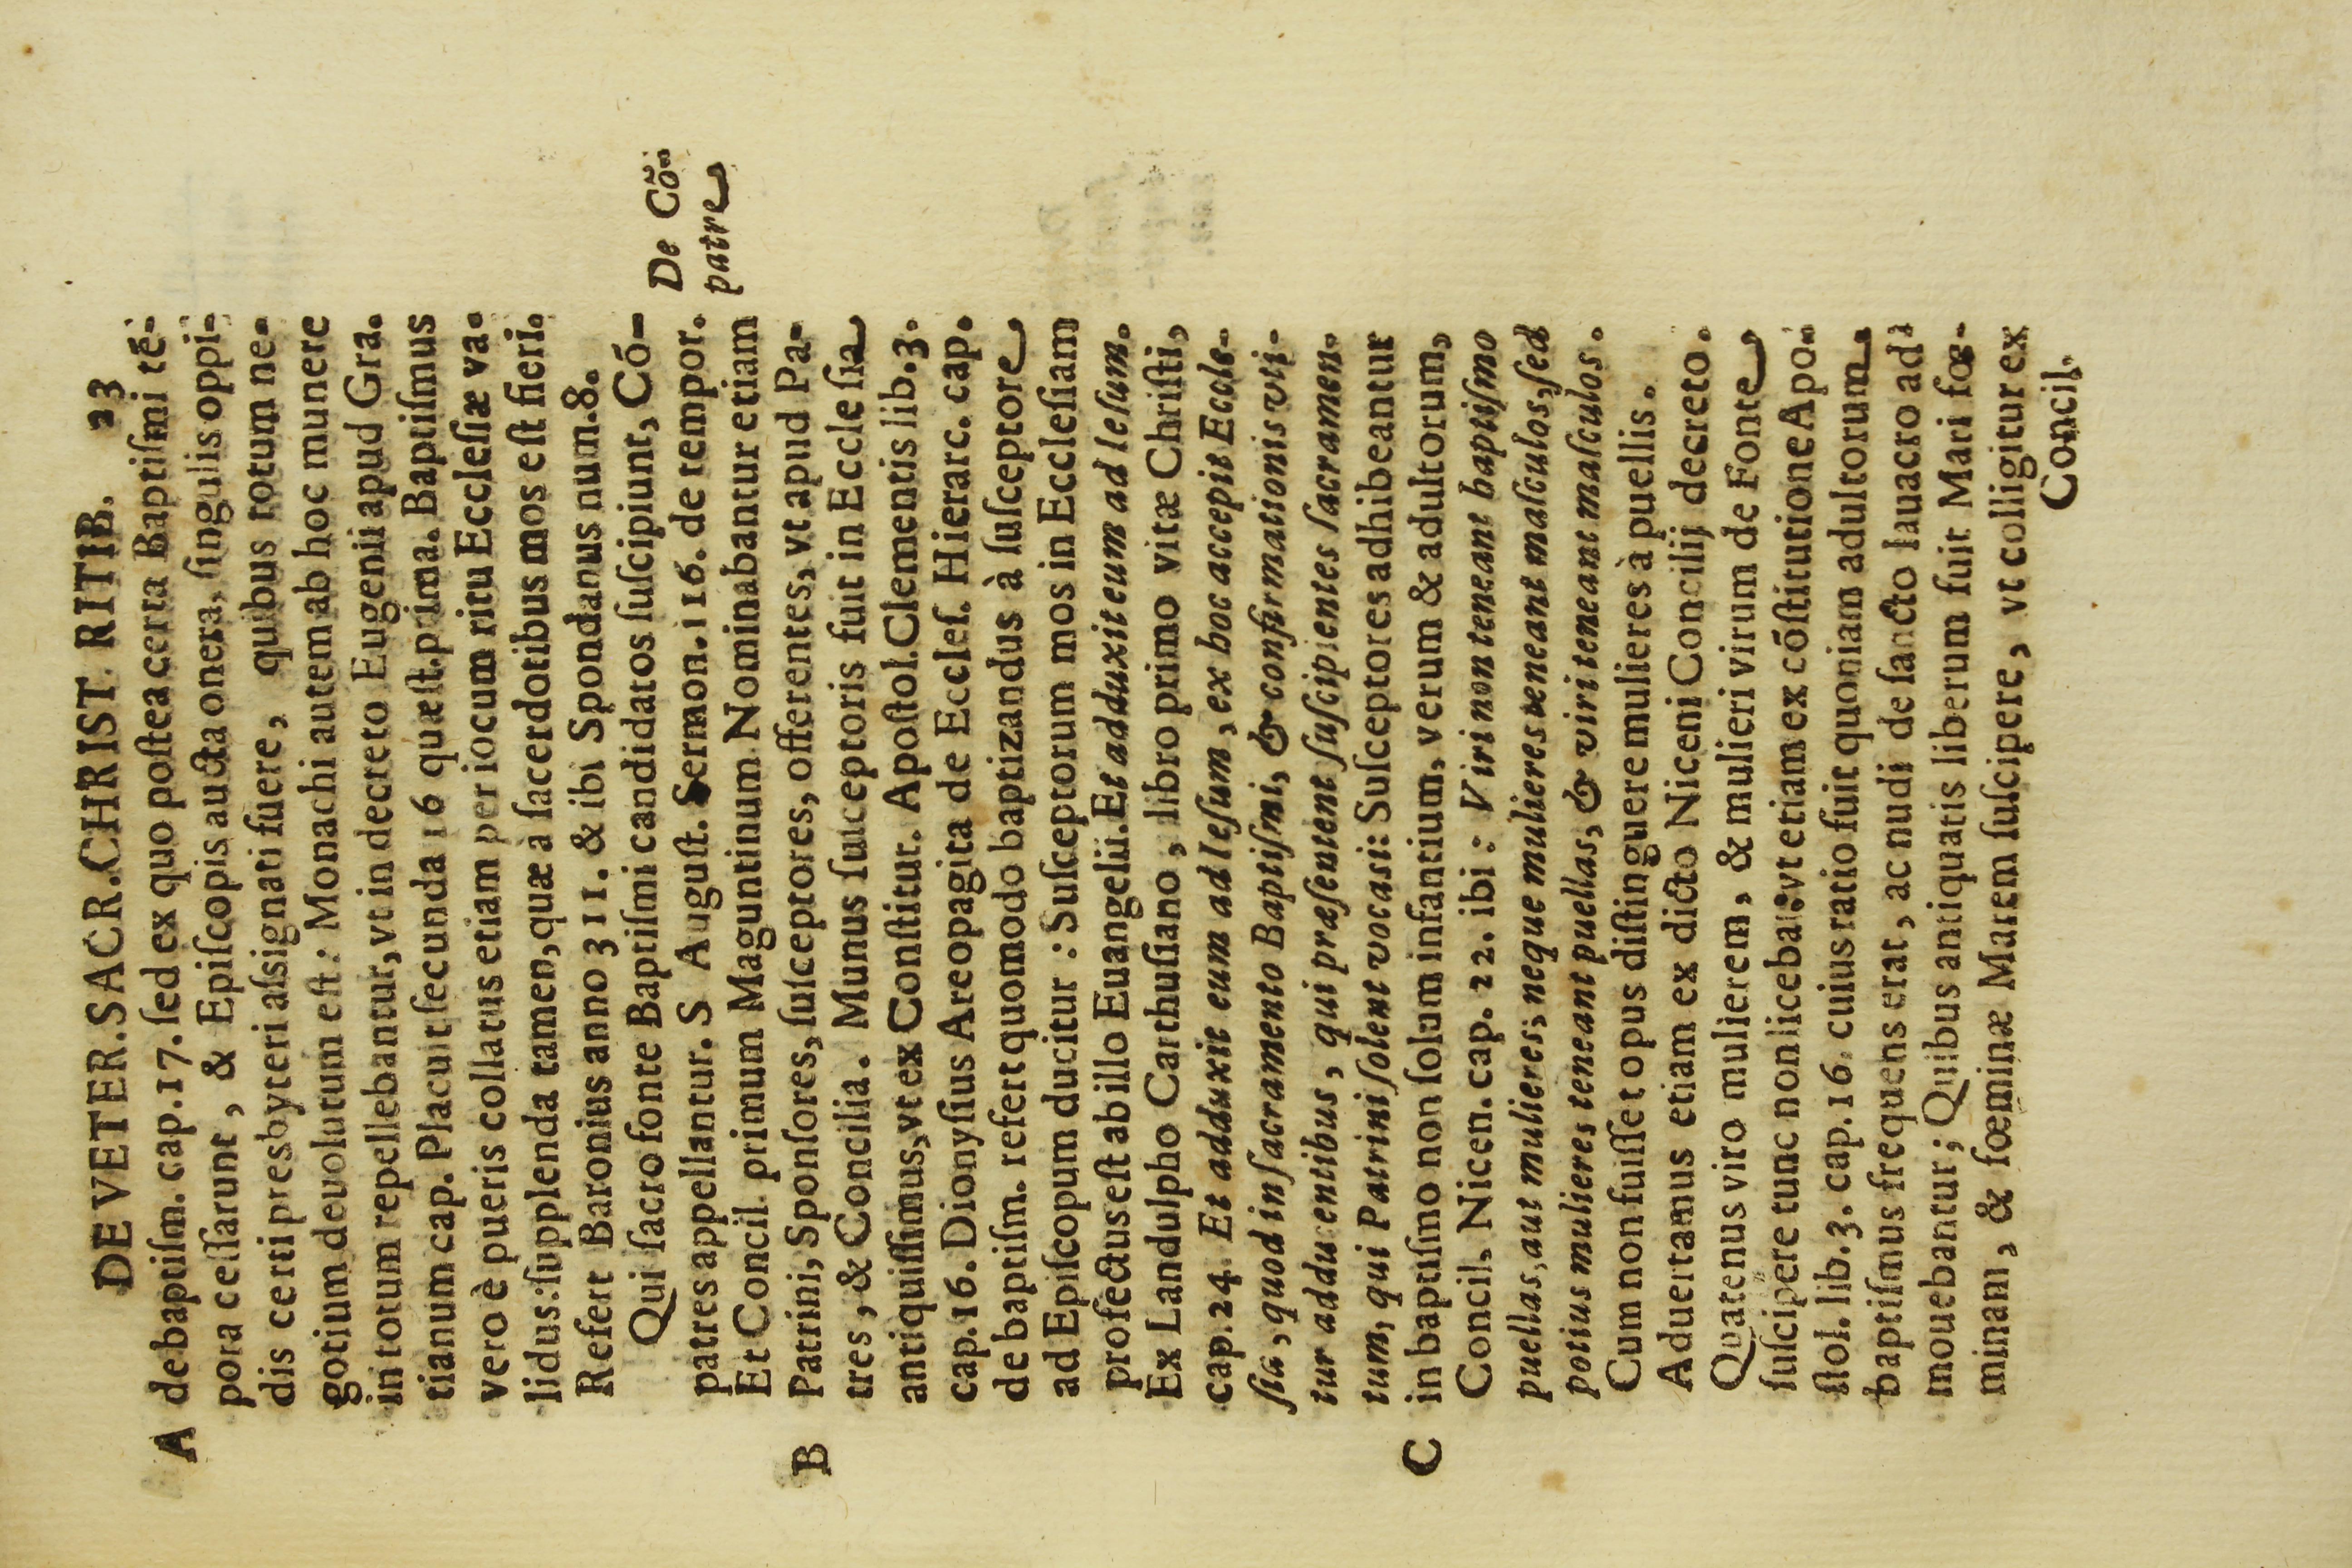 DE VETER. SACR. CHRIST. RITIB. 23
A de baptiſm. cap. 17. ſed ex quo poſtea certa Baptiſmi tẽ-
pora ceſſarunt, & Epiſcopis aucta onera, ſingulis oppi-
dis certi presbyteri aſsignati fuere, quibus totum ne-
gotium deuolutum eſt: Monachi autem ab hoc munere
in totum repellebantur, vt in decreto Eugenii apud Gra.
tianum cap. Placuit ſecunda 16 quæſt. prima. Baptiſmus
vero è pueris collatus etiam per iocum ritu Eccleſiæ va.
lidus: ſupplenda tamen, quæ a ſacerdotibus mos eſt fieri.
Refert Baronius anno 311. & ibi Spondanus num. 8.
Qui ſacro fonte Baptiſmi candidatos ſuſcipiunt, Cõ-
De Cõ-
patres appellantur. S Auguſt. Sermon. 116. de tempor.
patre
Et Concil. primum Maguntinum. Nominabantur etiam
B Patrini, Sponſores, ſuſceptores, offerentes, vt apud Pa-
tres, & Concilia. Munus ſuſceptoris fuit in Eccleſia
antiquiſſimus, vt ex Conſtitut. Apoſtol. Clementis lib. 3.
cap. 16. Dionyſius Areopagita de Eccleſ. Hierarc. cap.
de baptiſm. refert quomodo baptizandus à ſuſceptore
ad Epiſcopum ducitur: Suſceptorum mos in Eccleſiam
profectus eſt ab illo Euangelii. Et adduxit eum ad Ieſum.
Ex Landulpho Carthuſiano, libro primo vitæ Chriſti,
cap. 24. Et adduxit eum ad Ieſum, ex hoc accepit Eccle-
ſia, quod in ſacramento Baptiſmi, & confirmationis vti-
tur adducentibus, qui præſentent ſuſcipientes ſacramen-
tum, qui Patrini ſolent vocasi: Suſceptores adhibeantur
C in baptiſmo non ſolum infantium, verum & adultorum,
Concil. Nicen. cap. 22. ibi: Viri non teneant baptiſmo
puellas, aut mulieres; neque mulieres teneant maſculos, ſed
potius mulieres teneant puellas, & viri teneant maſculos.
Cum non fuiſſet opus diſtinguere mulieres à puellis.
Aduertamus etiam ex dicto Niceni Concilij decreto.
Quatenus viro mulierem, & mulieri virum de Fonte
ſuſcipere tunc non licebat: vt etiam ex cõſtitutione Apo-
ſtol. lib. 3. cap. 16. cuius ratio fuit quoniam adultorum
baptiſmus frequens erat, ac nudi de ſancto lauacro ad-
mouebantur; Quibus antiquatis liberum fuit Mari fœ-
minam, & fœminæ Marem ſuſcipere, vt colligitur ex
Concil.